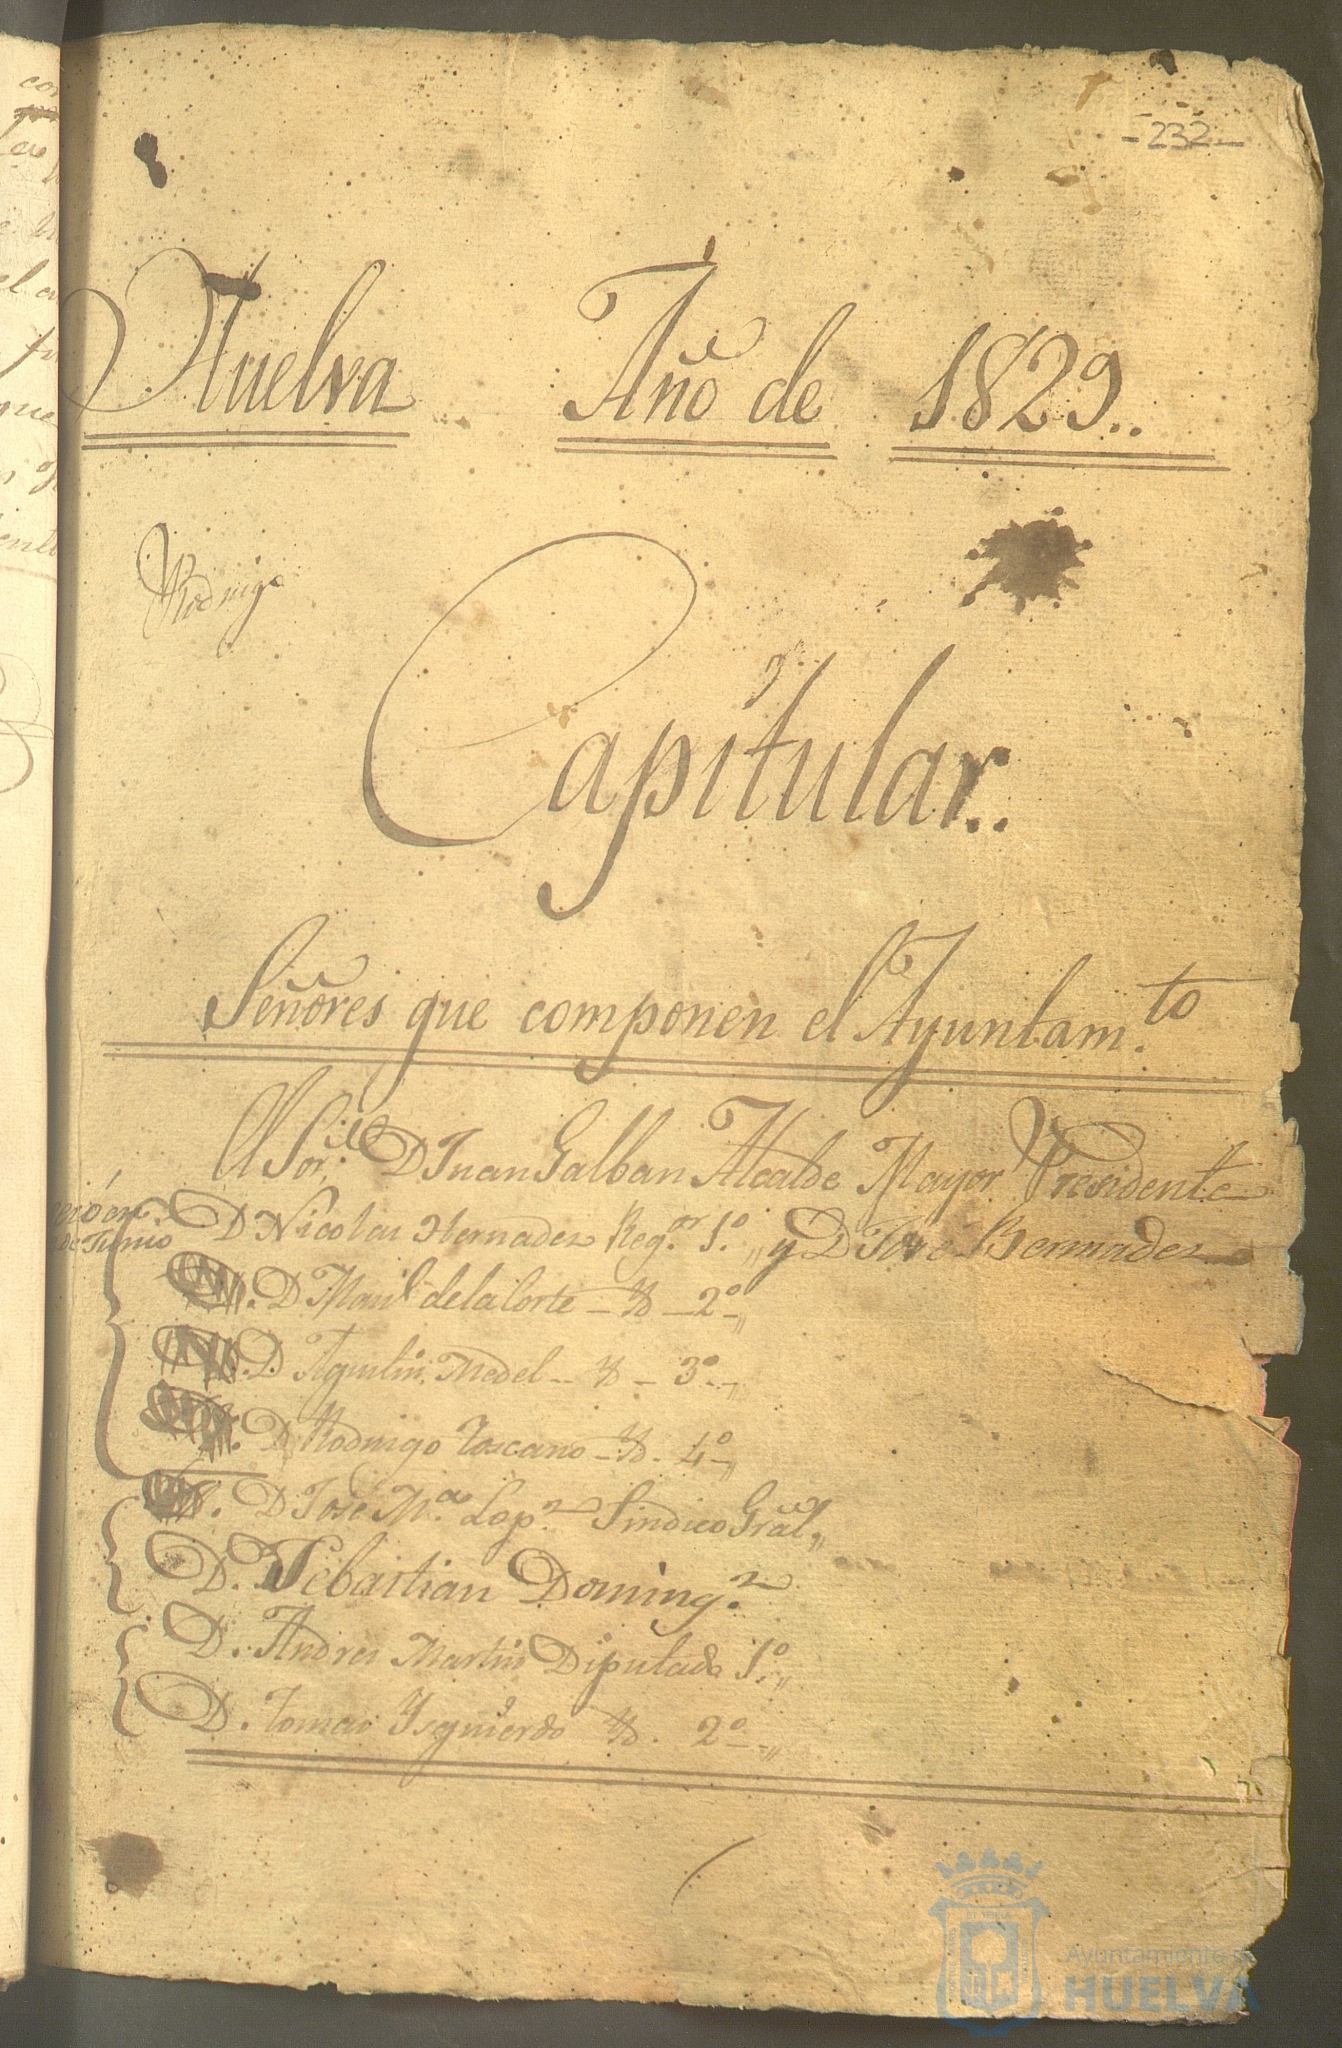 -232-
Huelva Año de 1829..
Rodrigo
Capitular..
Señores que componen el Ayuntam.to
El Sor. D Juan Galban Alcalde Mayor Presidente
D Nicolas Hernadez Reg.or 1.º y D Jose Bermudez
de Junio
D Man.l de la Corte - Yd - 2º-
D Agustin Medel - Yd - 3º-
D Rodrigo Toscano - Yd. 4º-
D Jose M.a Lop.z Sindico Gral
D. Sebastian Doming.z
D. Andres Martin Diputado 1º
D. Tomas Ysquierdo Yd. 2º-
Ayuntamiento
HUELVA